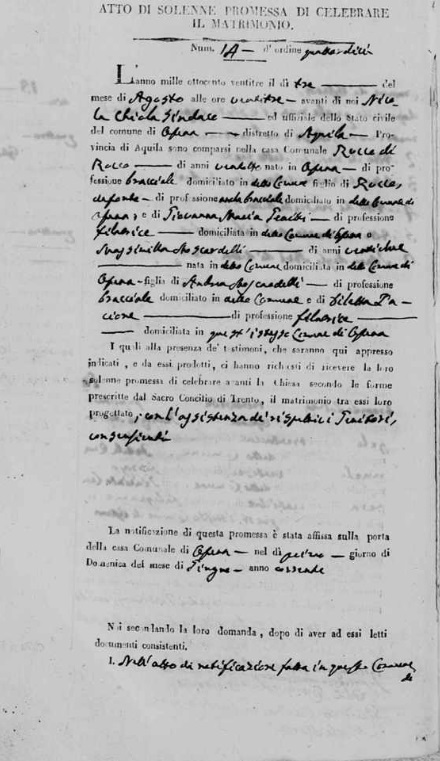 ATTO DI SOLENNE PROMESSA DI CELEBRARE
IL MATRIMONIO.
Num. 14 d'ordine quattordici
L'anno mille ottocento ventitre il dì tre del
mese di Agosto alle ore ventitre avanti di noi Nico
la Sindaco ed uffiziale dello Stato civile
del comune di distretto di Aquila Pro-
vincia di Aquila sono comparsi nella casa Comunale Rocco di
Rocco di anni ventotto nato in di pro-
fessione bracciale domiciliato in detto Comune figlio di Rocco,
di professione anche bracciale domiciliato in detto Comune di
e di Giovanna Maria di professione
filatrice domiciliata in detto Comune di e
Massimilla Moscardelli di anni
nata in detto Comune domiciliata in detto Comune di
figlia di Andrea Moscardelli di professione
bracciale domiciliato in detto Comune e di Diletta Pa-
cione di professione filatrice
domiciliata in quest'istesso Comune di
I quali alla presenza de' testimonj, che saranno qui appresso
indicati, e da essi prodotti, ci hanno richiesti di ricevere la loro
solenne promessa di celebrare avanti la Chiesa secondo le forme
prescritte dal Sacro Concilio di Trento, il matrimonio tra essi loro
progettato, con l'assistenza de' rispettivi Genitori,
consenzienti
La notificazione di questa promessa è stata affissa sulla porta
della casa Comunale di nel dì primo giorno di
Domenica del mese di Giugno anno corrente
Noi secondando la loro domanda, dopo di aver ad essi letti
documenti consistenti.
1. Nell'atto di notificazione fatta in questo Comune